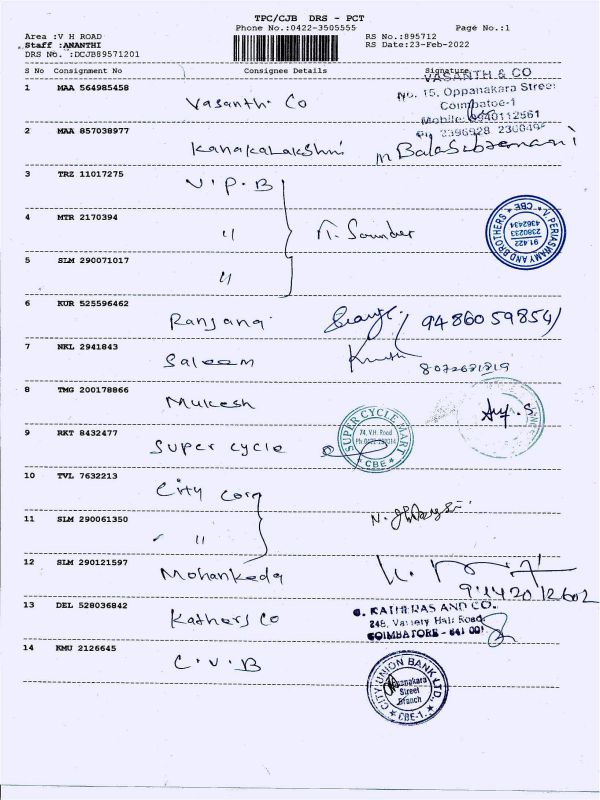 TPC/CJB DRS - PCT
Phone No.:0422-3505555 Page No.:1
Area :V H ROAD RS No.:895712
Staff :ANANTHI RS Date:23-Feb-2022
DRS No. :DCJB89571201
S No Consignment No Consignee Details Signature
1 MAA 564985458 Vasanth Co
VASANTH & CO
No. 15, Oppanakara Street
Coimbatoe-1
Mobile: 9940112561
2 MAA 857038977 Kanakalakshmi M Balasubramani
3 TRZ 11017275 V.P.B
4 MTR 2170394 "
V. PERIASWAMY AND BROTHERS
CBE
91.422
2380233
4362434
5 SLM 290071017 "
6 KUR 525596462 Ranjana 9486059854
7 NKL 2941843 Saleem
8 TMG 200178866 Mukesh
9 RKT 8432477 Super cycle
SUPER CYCLE MART
74, V.H. Road
CBE
10 TVL 7632213 City Corp
11 SLM 290061350 "
12 SLM 290121597
13 DEL 528036842 Kathers Co
G. KATHERAS AND CO.
248, Variety Hall Road
COIMBATORE - 641 001
14 KMU 2126645 C.U.B
CITY UNION BANK LTD.,
Oppanakara
Street
Branch
CBE-1.